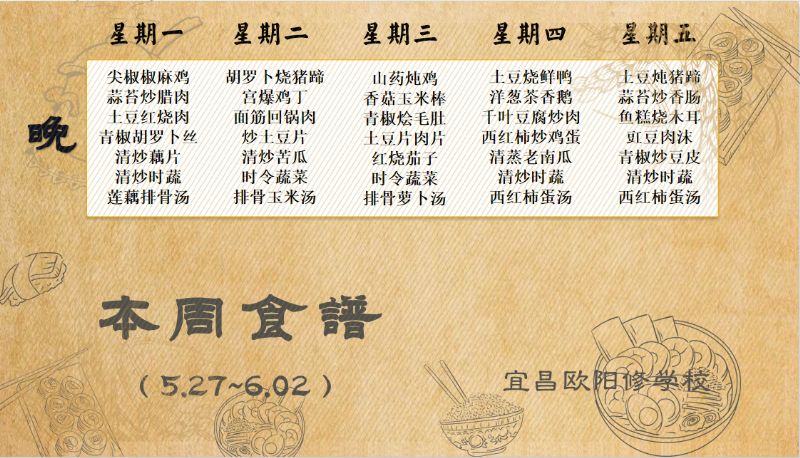 星期一 星期二 星期三 星期四 星期五
晚
尖椒椒麻鸡 胡罗卜烧猪蹄 山药炖鸡 土豆烧鲜鸭 土豆炖猪蹄
蒜苔炒腊肉 宫爆鸡丁 香菇玉米棒 洋葱茶香鹅 蒜苔炒香肠
土豆红烧肉 面筋回锅肉 青椒烩毛肚 千叶豆腐炒肉 鱼糕烧木耳
青椒胡罗卜丝 炒土豆片 土豆片肉片 西红柿炒鸡蛋 豇豆肉沫
清炒藕片 清炒苦瓜 红烧茄子 清蒸老南瓜 青椒炒豆皮
清炒时蔬 时令蔬菜 时令蔬菜 清炒时蔬 清炒时蔬
莲藕排骨汤 排骨玉米汤 排骨萝卜汤 西红柿蛋汤 西红柿蛋汤
本周食譜
（5.27~6.02）
宜昌欧阳修学校